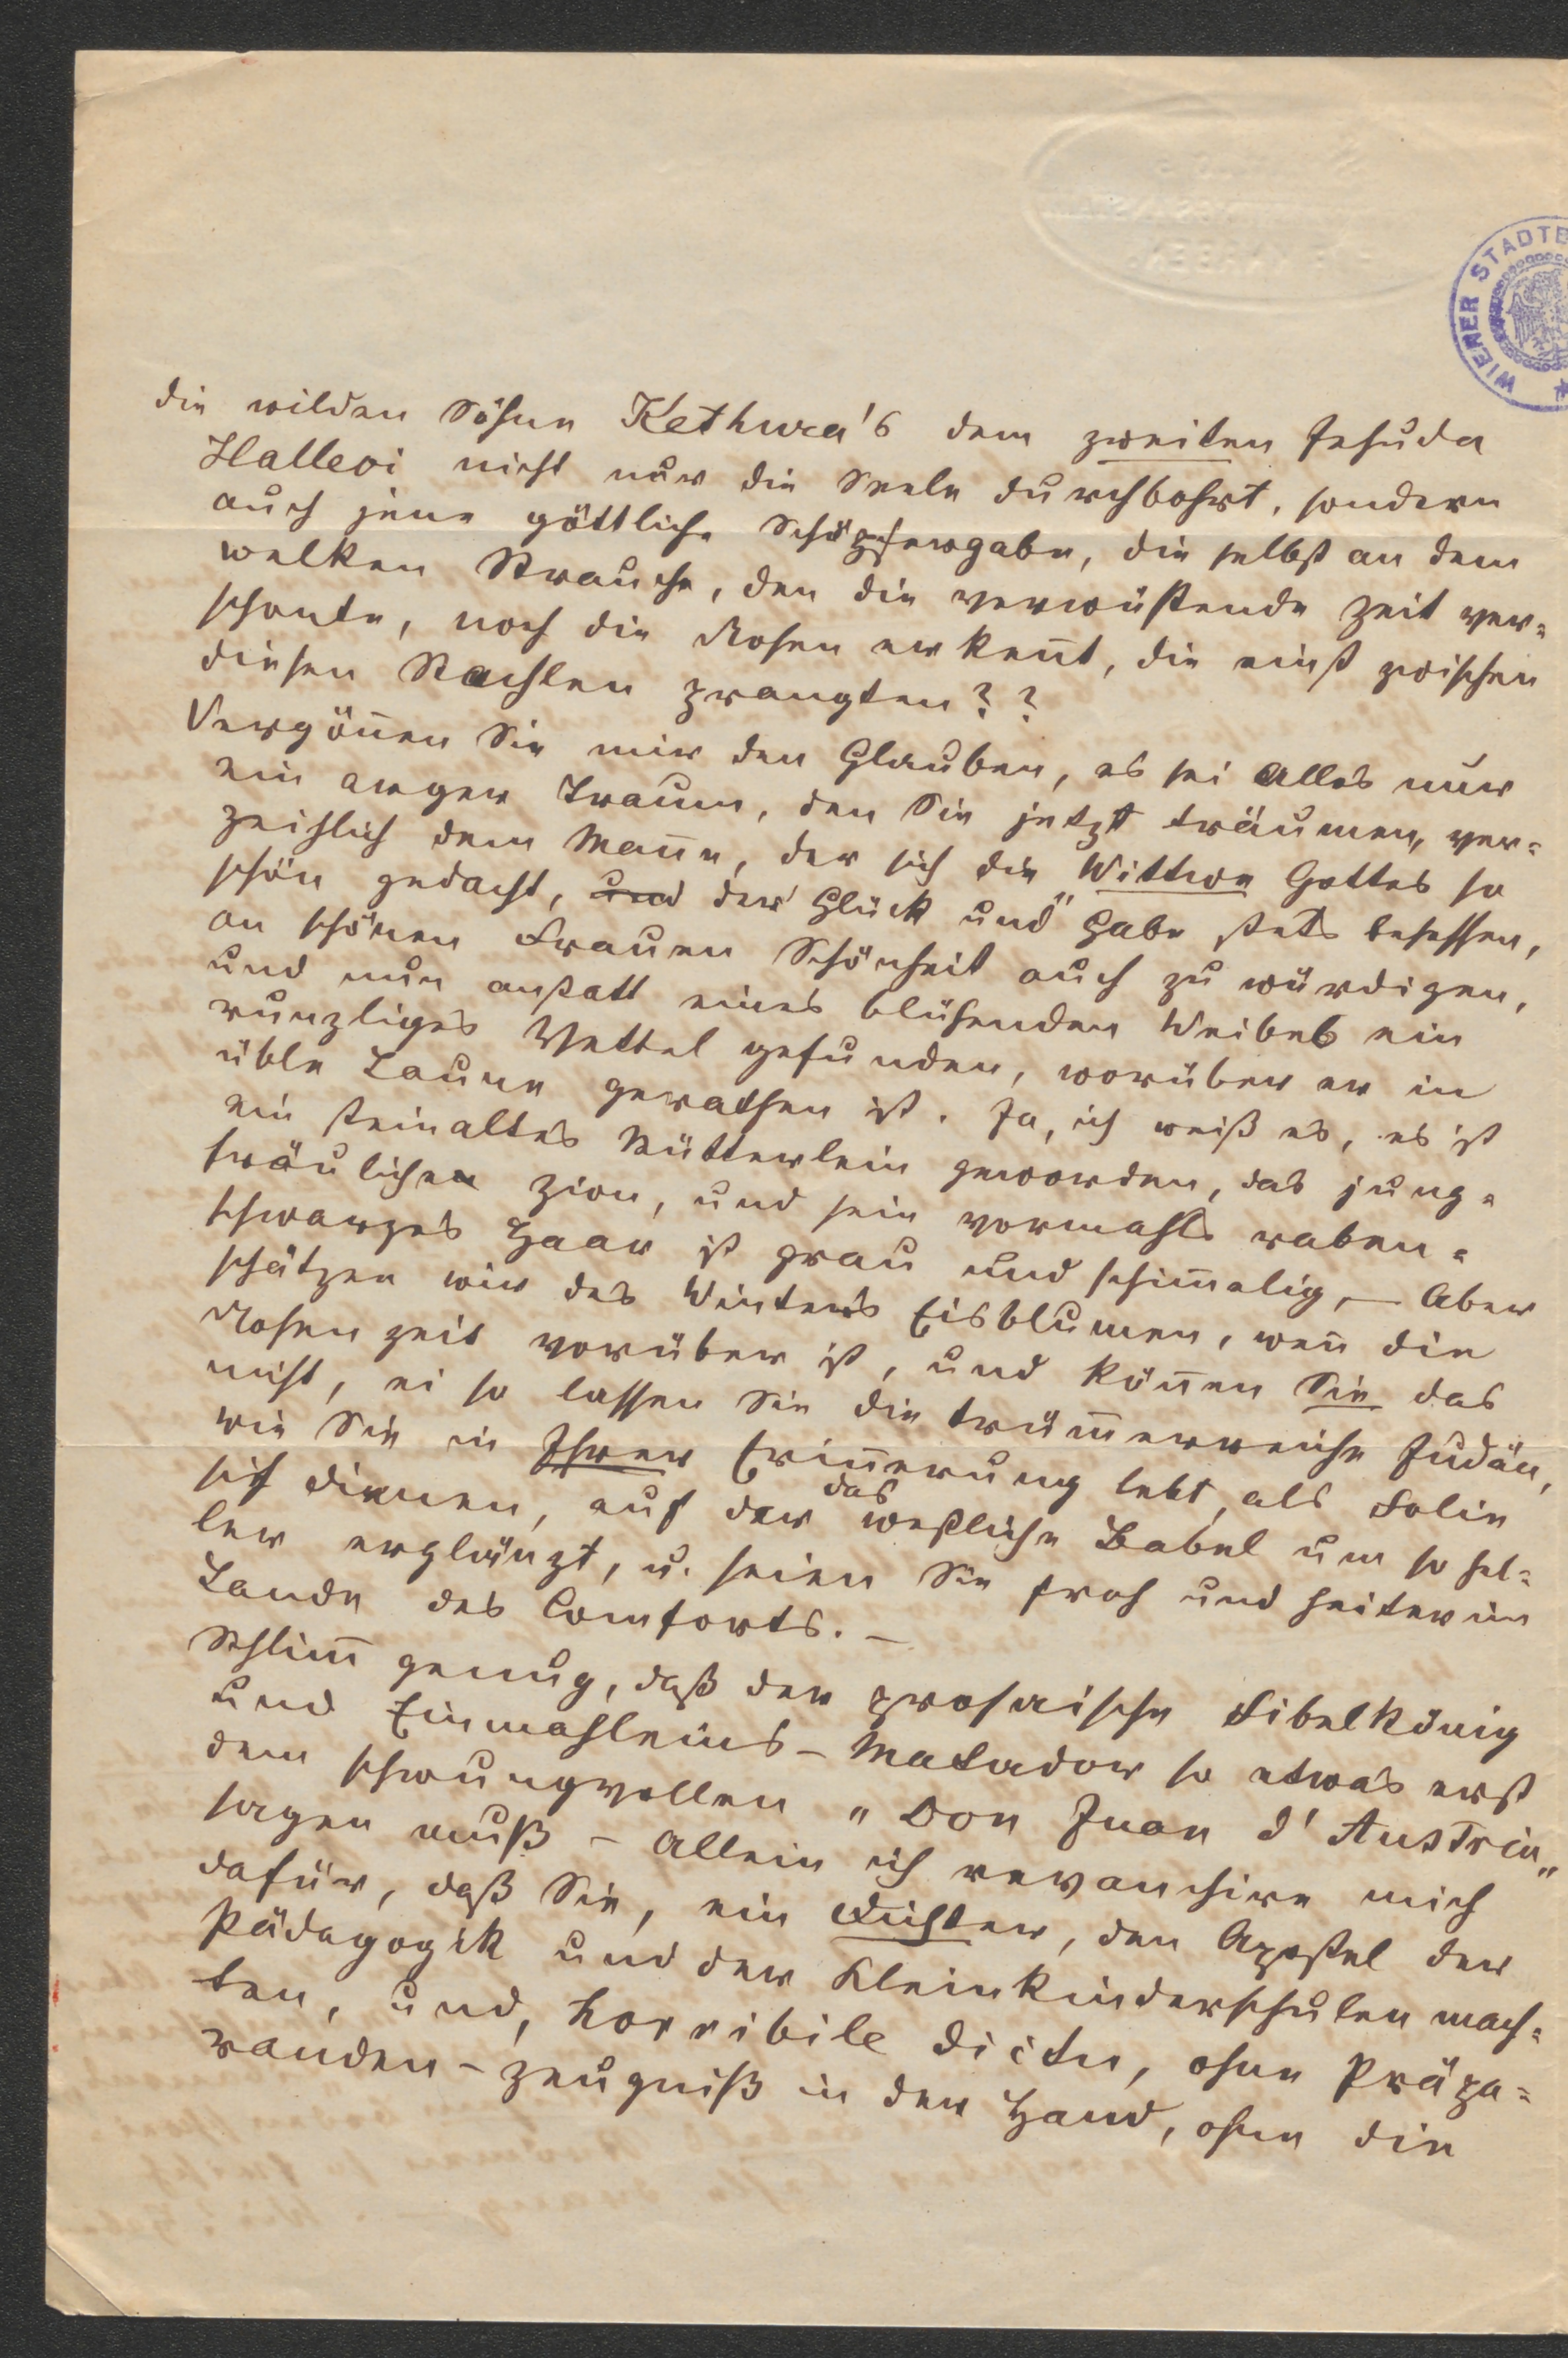 WIENER STADTB
die wilden Söhne Kethura's dem zweiten Jehuda
Hallevi nicht nur die Seele durchbohrt, sondern
auch jene göttliche Schöpfergabe, die selbst an dem
welken Strauche, den die verwüstende Zeit ver=
schonte, noch die Rosen erkeñt, die einst zwischen
diesen Stacheln prangten??
Vergöñen Sie mir den Glauben, es sei Alles nur
ein arger Traum, den Sie jetzt träumen, ver=
zeihlich dem Mañe, der sich die „Wittwe Gottes" so
schön gedacht, und der Glück und Gabe stets besessen,
an schönen Frauen Schönheit auch zu würdigen,
und nun anstatt eines blühenden Weibes ein
runzliges Vettel gefunden, worüber er in
üble Laune gerathen ist. Ja, ich weiß es, es ist
ein steinaltes Mütterlein geworden, das jung=
fräuliche Zion, und sein vormahls raben=
schwarzes Haar ist grau und schim̃elig, — Aber
schätzen wir des Winters Eisblumen, weñ die
Rosenzeit vorüber ist, und köñen Sie das
nicht, ei so lassen Sie die trüm̃erreiche Judäa,
wie Sie in Ihrer Eriñerung lebt, als Folie
sich dienen, auf der das westliche Babel um so hel=
ler erglänzt, u. seien Sie froh und heiter im
Lande des Comforts. —
Schlim̃ genug, daß der prosaische Fibelkönig
und Einmahleins-Matador so etwas erst
dem schwungvollen „Don Juan d'Austria"
sagen muß – allein ich revanchire mich
dafür, daß Sie, ein Dichter, den Apostel der
Pädagogik und der Kleinkinderschulen mach=
ten, und, horribile dictu, ohne Präpa=
randen-Zeugniß in der Hand, ohne die